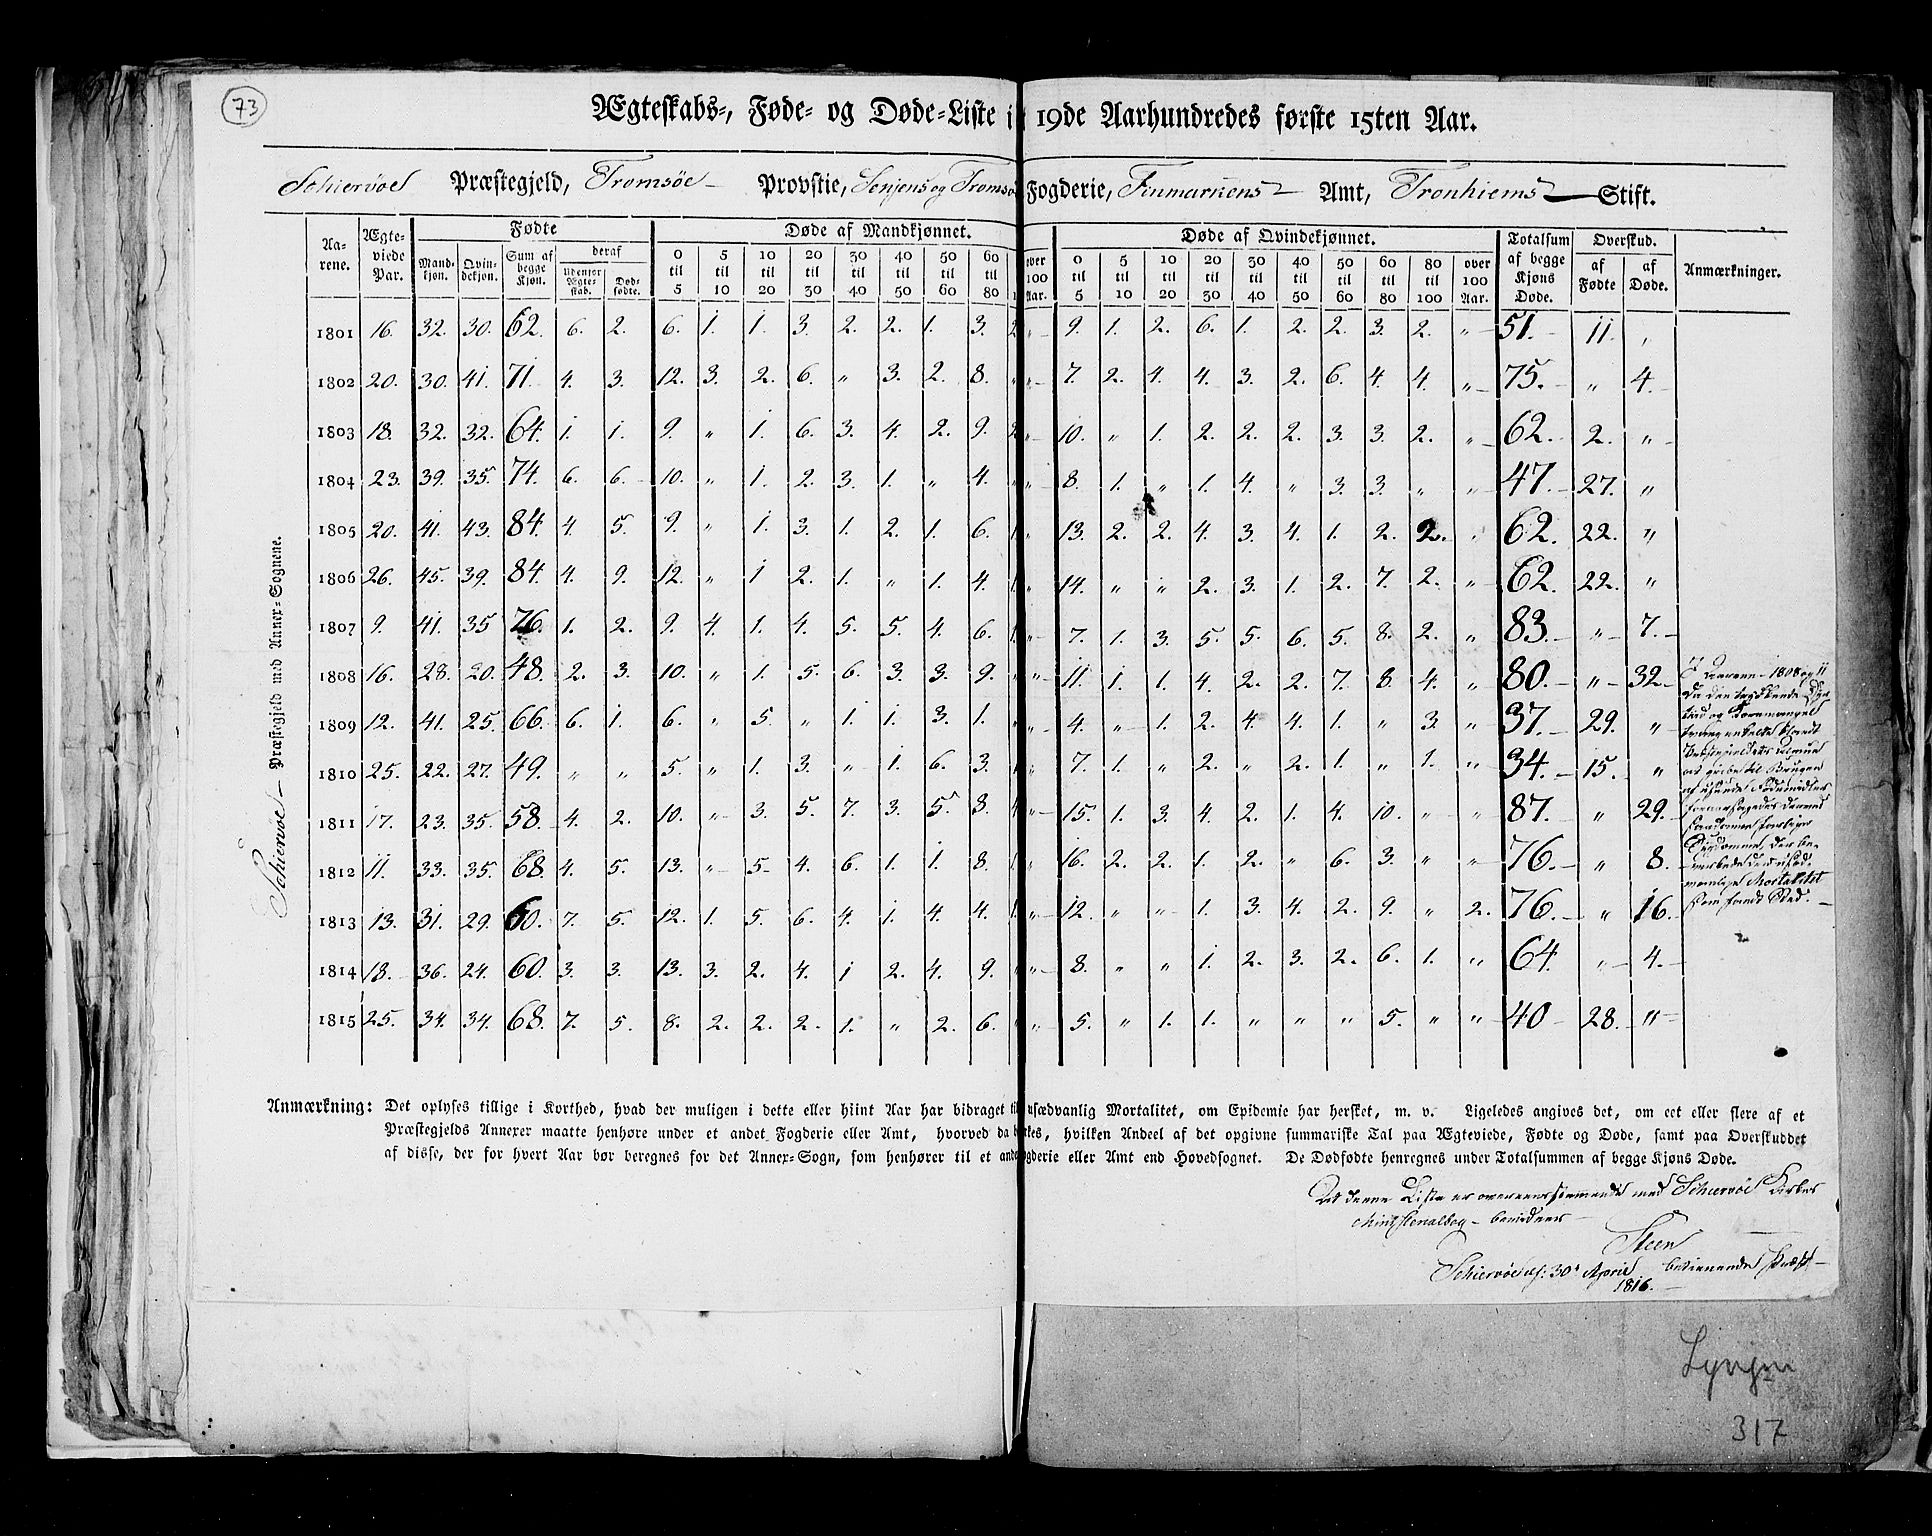 73
Ægteskabs-, Føde- og Døde-Liste i 19de Aarhundredes første 15ten Aar.
Schiervøe Præstegjeld, Tromsøe Provstie, Senjens og Tromsø Fogderie, Finmarkens Amt, Tronhiems Stift.
Fødte Døde af Mandkjønnet. Døde af Qvindekjønnet.
Aarene. Ægteviede Par. Mandkjøn. Qvindekjøn. Sum af begge Kjøn. deraf Udenfor Ægteskab. Dødfødte. 0 til 5 5 til 10 10 til 20 20 til 30 30 til 40 40 til 50 50 til 60 60 til 80 over 100 Aar. 0 til 5 5 til 10 10 til 20 20 til 30 30 til 40 40 til 50 50 til 60 60 til 80 80 til 100 over 100 Aar. Totalsum af begge Kjøns Døde. Overskud. af Fødte af Døde. Anmærkninger.
Schiervøe Præstegjeld med Annex-Sognene.
1801 16. 32. 30. 62. 6. 2. 6. 1. 1. 3. 2. 2. 1. 3. 2 " 9. 1. 2. 6. 1. 2. 2. 3. 2. " 51. 11. "
1802 20. 30. 41. 71. 4. 3. 12. 3. 2. 6. " 3. 2. 8. " " 7. 2. 4. 4. 3. 2. 6. 4. 4. " 75. " 4.
1803 18. 32. 32. 64. 1. 1. 9. " 1. 6. 3. 4. 2. 9. 2 " 10. " 1. 2. 2. 2. 3. 3. 2. " 62. 2. "
1804 23. 39. 35. 74. 6. 6. 10. " 1. 2. 3. 1. " 4. " " 8. 1. " 1. 4. " 3. 3. " " 47. 27. "
1805 20. 41. 43. 84. 4. 5. 9. " 1. 3. 1. 2. 1. 6. 1. " 13. 2. 2. 4. 3. 4. 1. 2. 2. " 62. 22. "
1806 26. 45. 39. 84. 4. 9. 12. " 1 2. 1. " 1. 4. 1. " 14. " " 2. 3. 1. 2. 7. 2. " 62. 22. "
1807 9. 41. 35 76. 1. 2. 9. 4. 1. 4. 5. 5. 4. 6. 1. " 7. 1. 3. 5. 5. 6. 5. 8. 2. " 83. " 7.
1808 16. 28. 20. 48. 2. 3. 10. " 1. 5. 6. 3. 3. 9. " " 11. 1. 1. 4. 2. 2. 7. 8. 4. " 80. " 32.
1809 12. 41. 25 66. 6. 1. 6. " 5. " 1. 1. 3. 1. " " 4. " 1. 2. 4. 4. 1. " 3. " 37. 29. "
1810 25. 22. 27. 49. " " 5. " 1. 3. " 1. 6. 3. 1. " 7. 1. " 2. " 2. 1. " 1. " 34. 15. "
1811 17. 23. 35. 58. 4. 2. 10. " 3. 5. 7. 3. 5. 8. " 15. 1. 3. 4. 2. 1. 4. 10. " " 87. " 29.
1812 11. 33. 35. 68. 4. 5. 13. " 5 4. 6. 1. 1. 8. " 16. 2. 2. 1. 2. " 6. 3. " " 76. " 8.
1813 13. 31. 29. 60. 7. 5. 12. 1. 5. 6. 4. 1. 4. 4. 1. " 12. " " 1. 3. 4. 2. 9. " 2. 76. " 16.
1814 18. 36. 24. 60. 3. 3. 13. 3. 2. 4. 1 2. 4. 9. " " 8. " " 1. 2. 3. 2. 6. 1. " 64. " 4.
1815 25. 34. 34. 68. 7. 5. 8. 2. 2. 2. 1. " 2. 6. " " 5. " 1. 1. " " " 5. " " 40 28. "
I Aarene 1808 og 11
og Kornmangel
at gribe til Brugen
af usunde Fødemidler
Sygdomme, der be-
Mortalitet
som fandt Sted.
Anmærkning: Det oplyses tillige i Korthed, hvad der muligen i dette eller hiint Aar har bidraget til usædvanlig Mortalitet, om Epidemie har hersket, m. v. Ligeledes angives det, om eet eller flere af et
Præstegjelds Annexer maatte henhøre under et andet Fogderie eller Amt, hvorved da hvilken Andeel af det opgivne summariske Tal paa Ægteviede, Fødte og Døde, samt paa Overskuddet
af disse, der for hvert Aar bør beregnes for det Annex-Sogn, som henhører til et andet Fogderie eller Amt end Hovedsognet. De Dødfødte henregnes under Totalsummen af begge Kjøns Døde.
At denne Liste er overensstemmende med Schiervøe Kirkes
Ministerialbog bevidner
Steen
Schiervøe d: 30 April betienende Præst
1816.
Lyngen
317